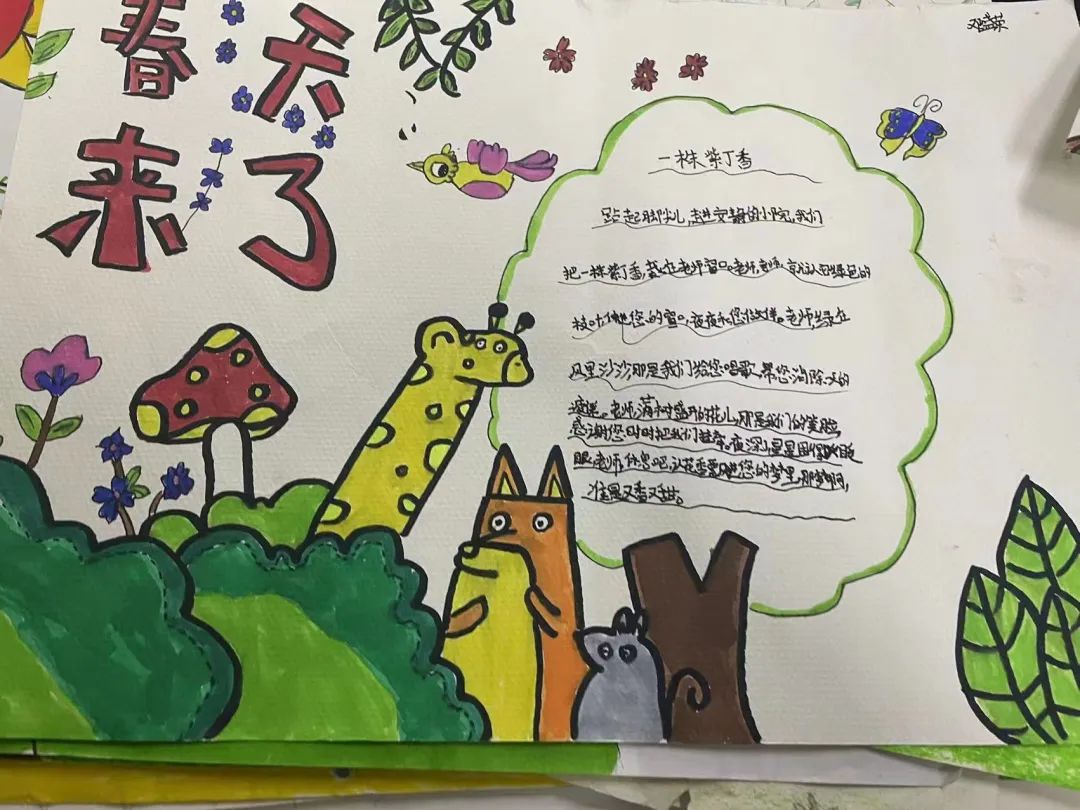 春天
来了
一株紫丁香
踮起脚尖儿,走进安静的小院,我们
把一株紫丁香,栽在老师窗口。老师,老师,就让它绿色的
枝叶伸进您的窗口,夜夜和您作伴。老师,绿在
风里沙沙那是我们给您唱歌,帮您消除一天的
疲倦。老师,满树盛开的花儿,那是我们的笑脸
感谢您时时把我们挂牵。夜深了,星星困得眨眼
眼,老师,休息吧,让花香飘进您的梦里,那梦啊,
准是又香又甜。